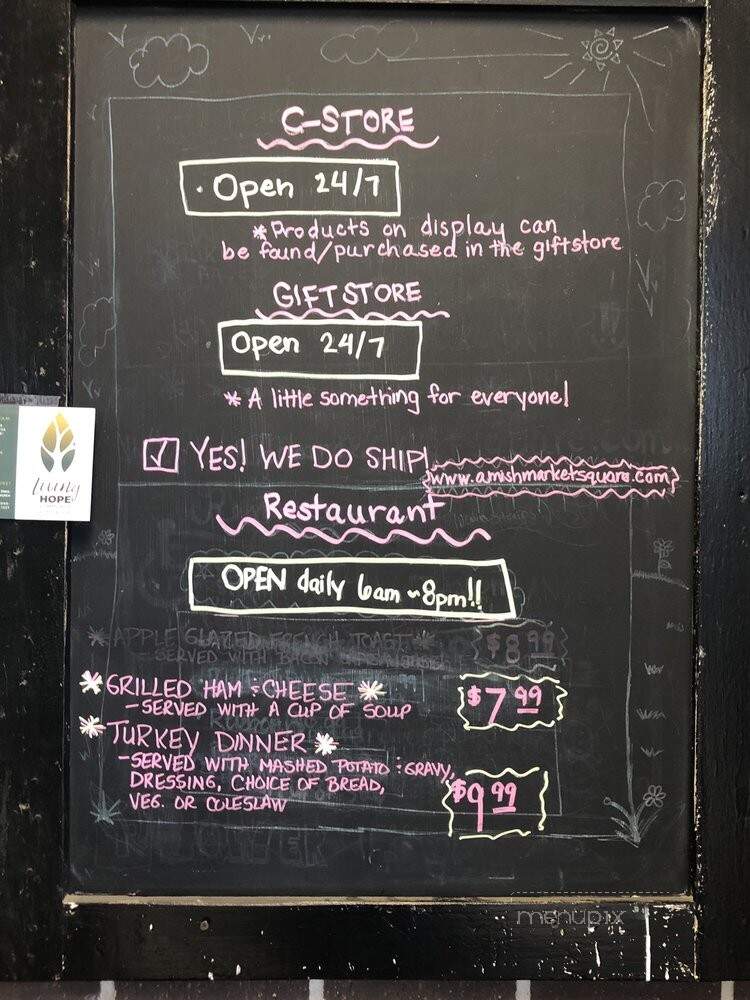 C-STORE
· Open 24/7
* Products on display can
be found/purchased in the giftstore
GIFTSTORE
Open 24/7
* A little something for everyone!
☑ YES! WE DO SHIP!
www.amishmarketsquare.com
Restaurant
OPEN daily 6am ~ 8pm!!
* APPLE GLAZED FRENCH TOAST * $8.99
- SERVED WITH BACON
* GRILLED HAM & CHEESE * $7.99
- SERVED WITH A CUP OF SOUP
* TURKEY DINNER *
- SERVED WITH MASHED POTATO & GRAVY,
DRESSING, CHOICE OF BREAD, $9.99
VEG. OR COLESLAW
living
HOPE
menupix